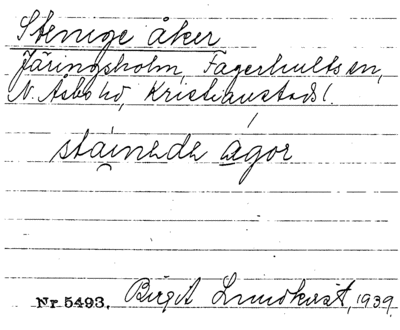 Stenige åker
Järingsholm, Fagerhults sn,
N. Åsbo hd, Kristianstads l.
stainede agor
Nr 5493. Birgit Lundkvist, 1939.